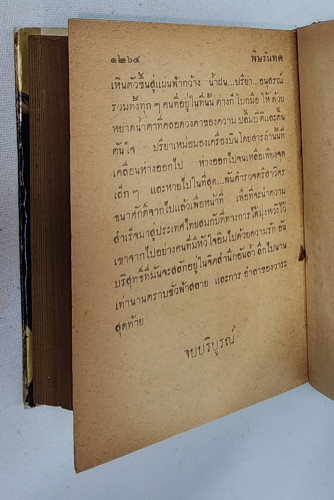 ๑๒๖๔ พิษรันทด
เหินตัวขึ้นสู่แผ่นฟ้ากว้าง น้ำฝน...ปริยา...อนุสรณ์
รวมทั้งทุก ๆ คนที่อยู่ในที่นั้น ต่างก็โบกมือให้ด้วย
หยาดน้ำตาที่คลอดวงตาของความปลื้มปีติและตื้น
ตันใจ ปริยาเหม่อมองเครื่องบินโดยสารลำนั้นที่
เคลื่อนห่างออกไป ห่างออกไปจนเหลือเพียงจุด
เล็ก ๆ และหายไปในที่สุด...พันตำรวจตรีสาวิตร
ชนาศักดิ์จากไปแล้วเพื่อหน้าที่ เพื่อที่จะนำความ
สำเร็จมาสู่ประเทศไทยสมกับที่ทางการได้มุ่งหวังไว้
เขาจากไปอย่างคนที่มีหัวใจอิ่มไปด้วยความรัก อัน
บริสุทธิ์ที่มันจะสลักอยู่ในจิตสำนึกอันล้ำลึกไปนาน
เท่านานตราบชั่วฟ้าสลาย และการ อำลาของวาระ
สุดท้าย
จบบริบูรณ์